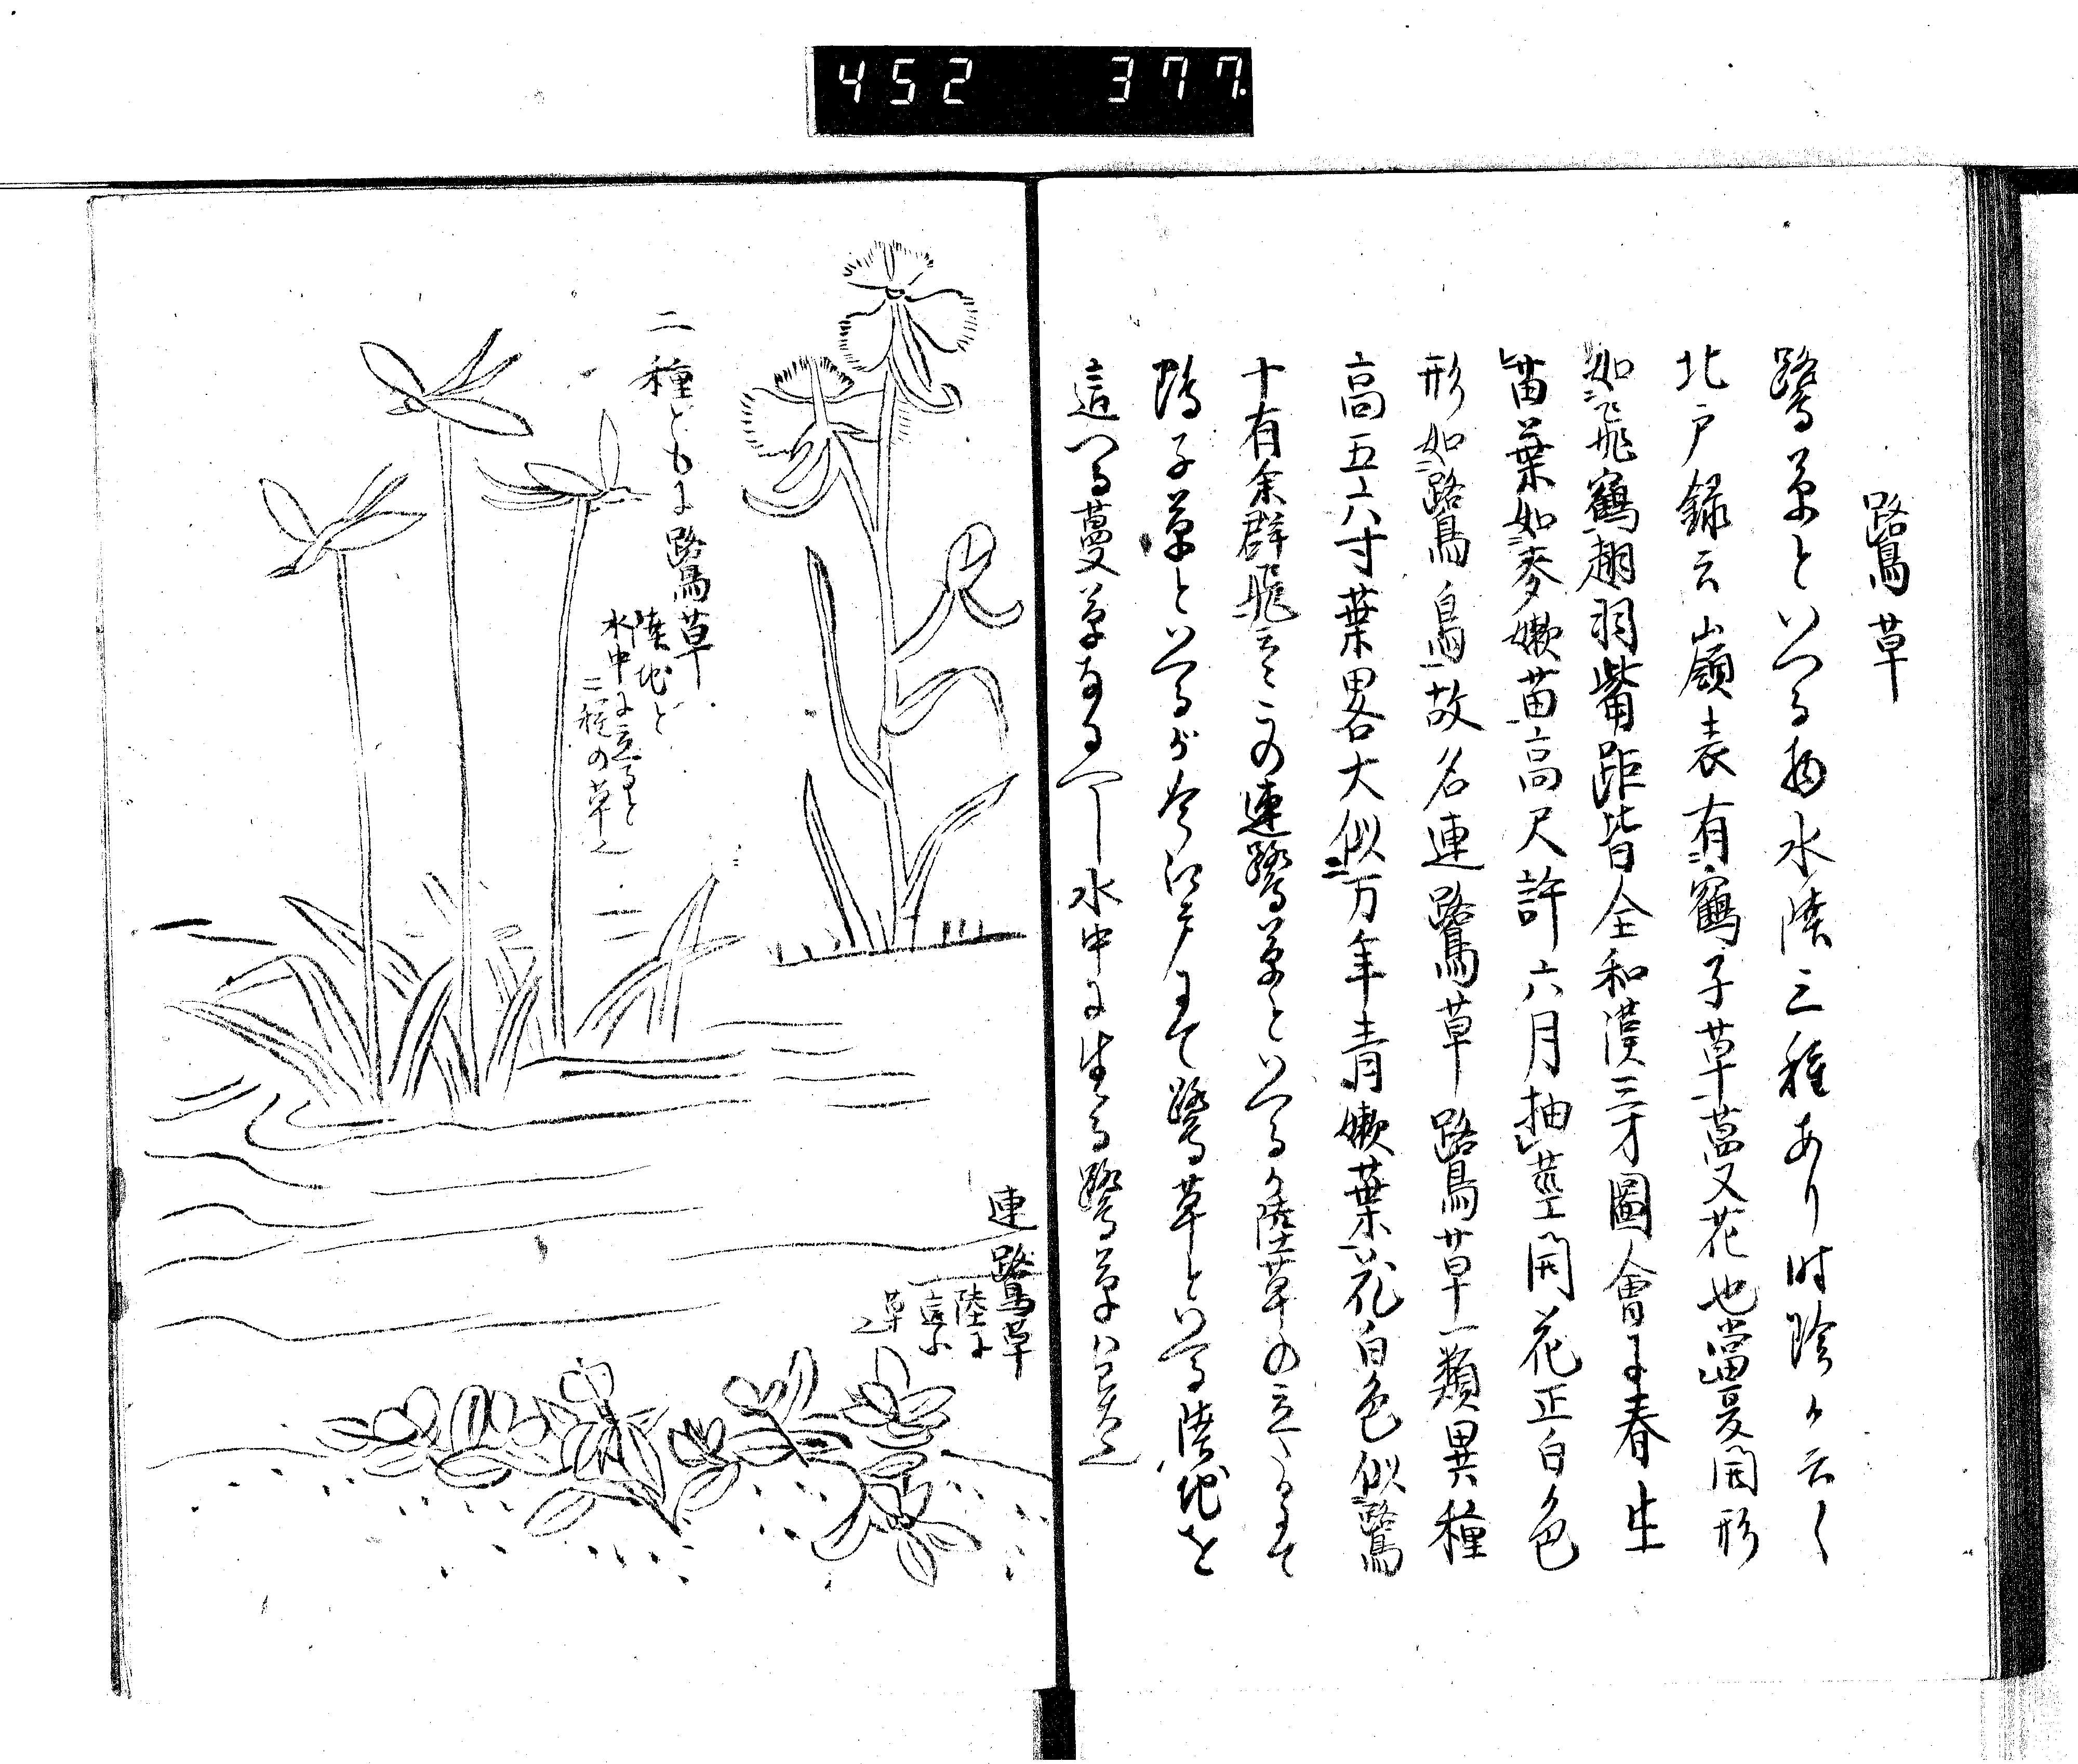 452 377.
鷺草
鷺草といへる物水陸三種あり時珍か云く
北戸録云嶺表有鶴子草蔓又花也當夏開形
如飛鶴翅羽觜距皆全和漢三才圖會に春生
苗葉如麥嫩苗高尺許六月抽莖開花正白色
形如鷺鳥故名連鷺草鷺草一類異種
高五六寸葉畧大似万年青嫩葉花白色似鷺
十有余群飛云々この連鷺草といへるか陸草の
子草といへるが今江戸にて鷺草といへる陸地を
這へる蔓草なるへし水中に生る鷺草ハ
二種ともに鷺草
陸地と
水中に立ると
二種の草也
連鷺草
陸に
這ふ
草也